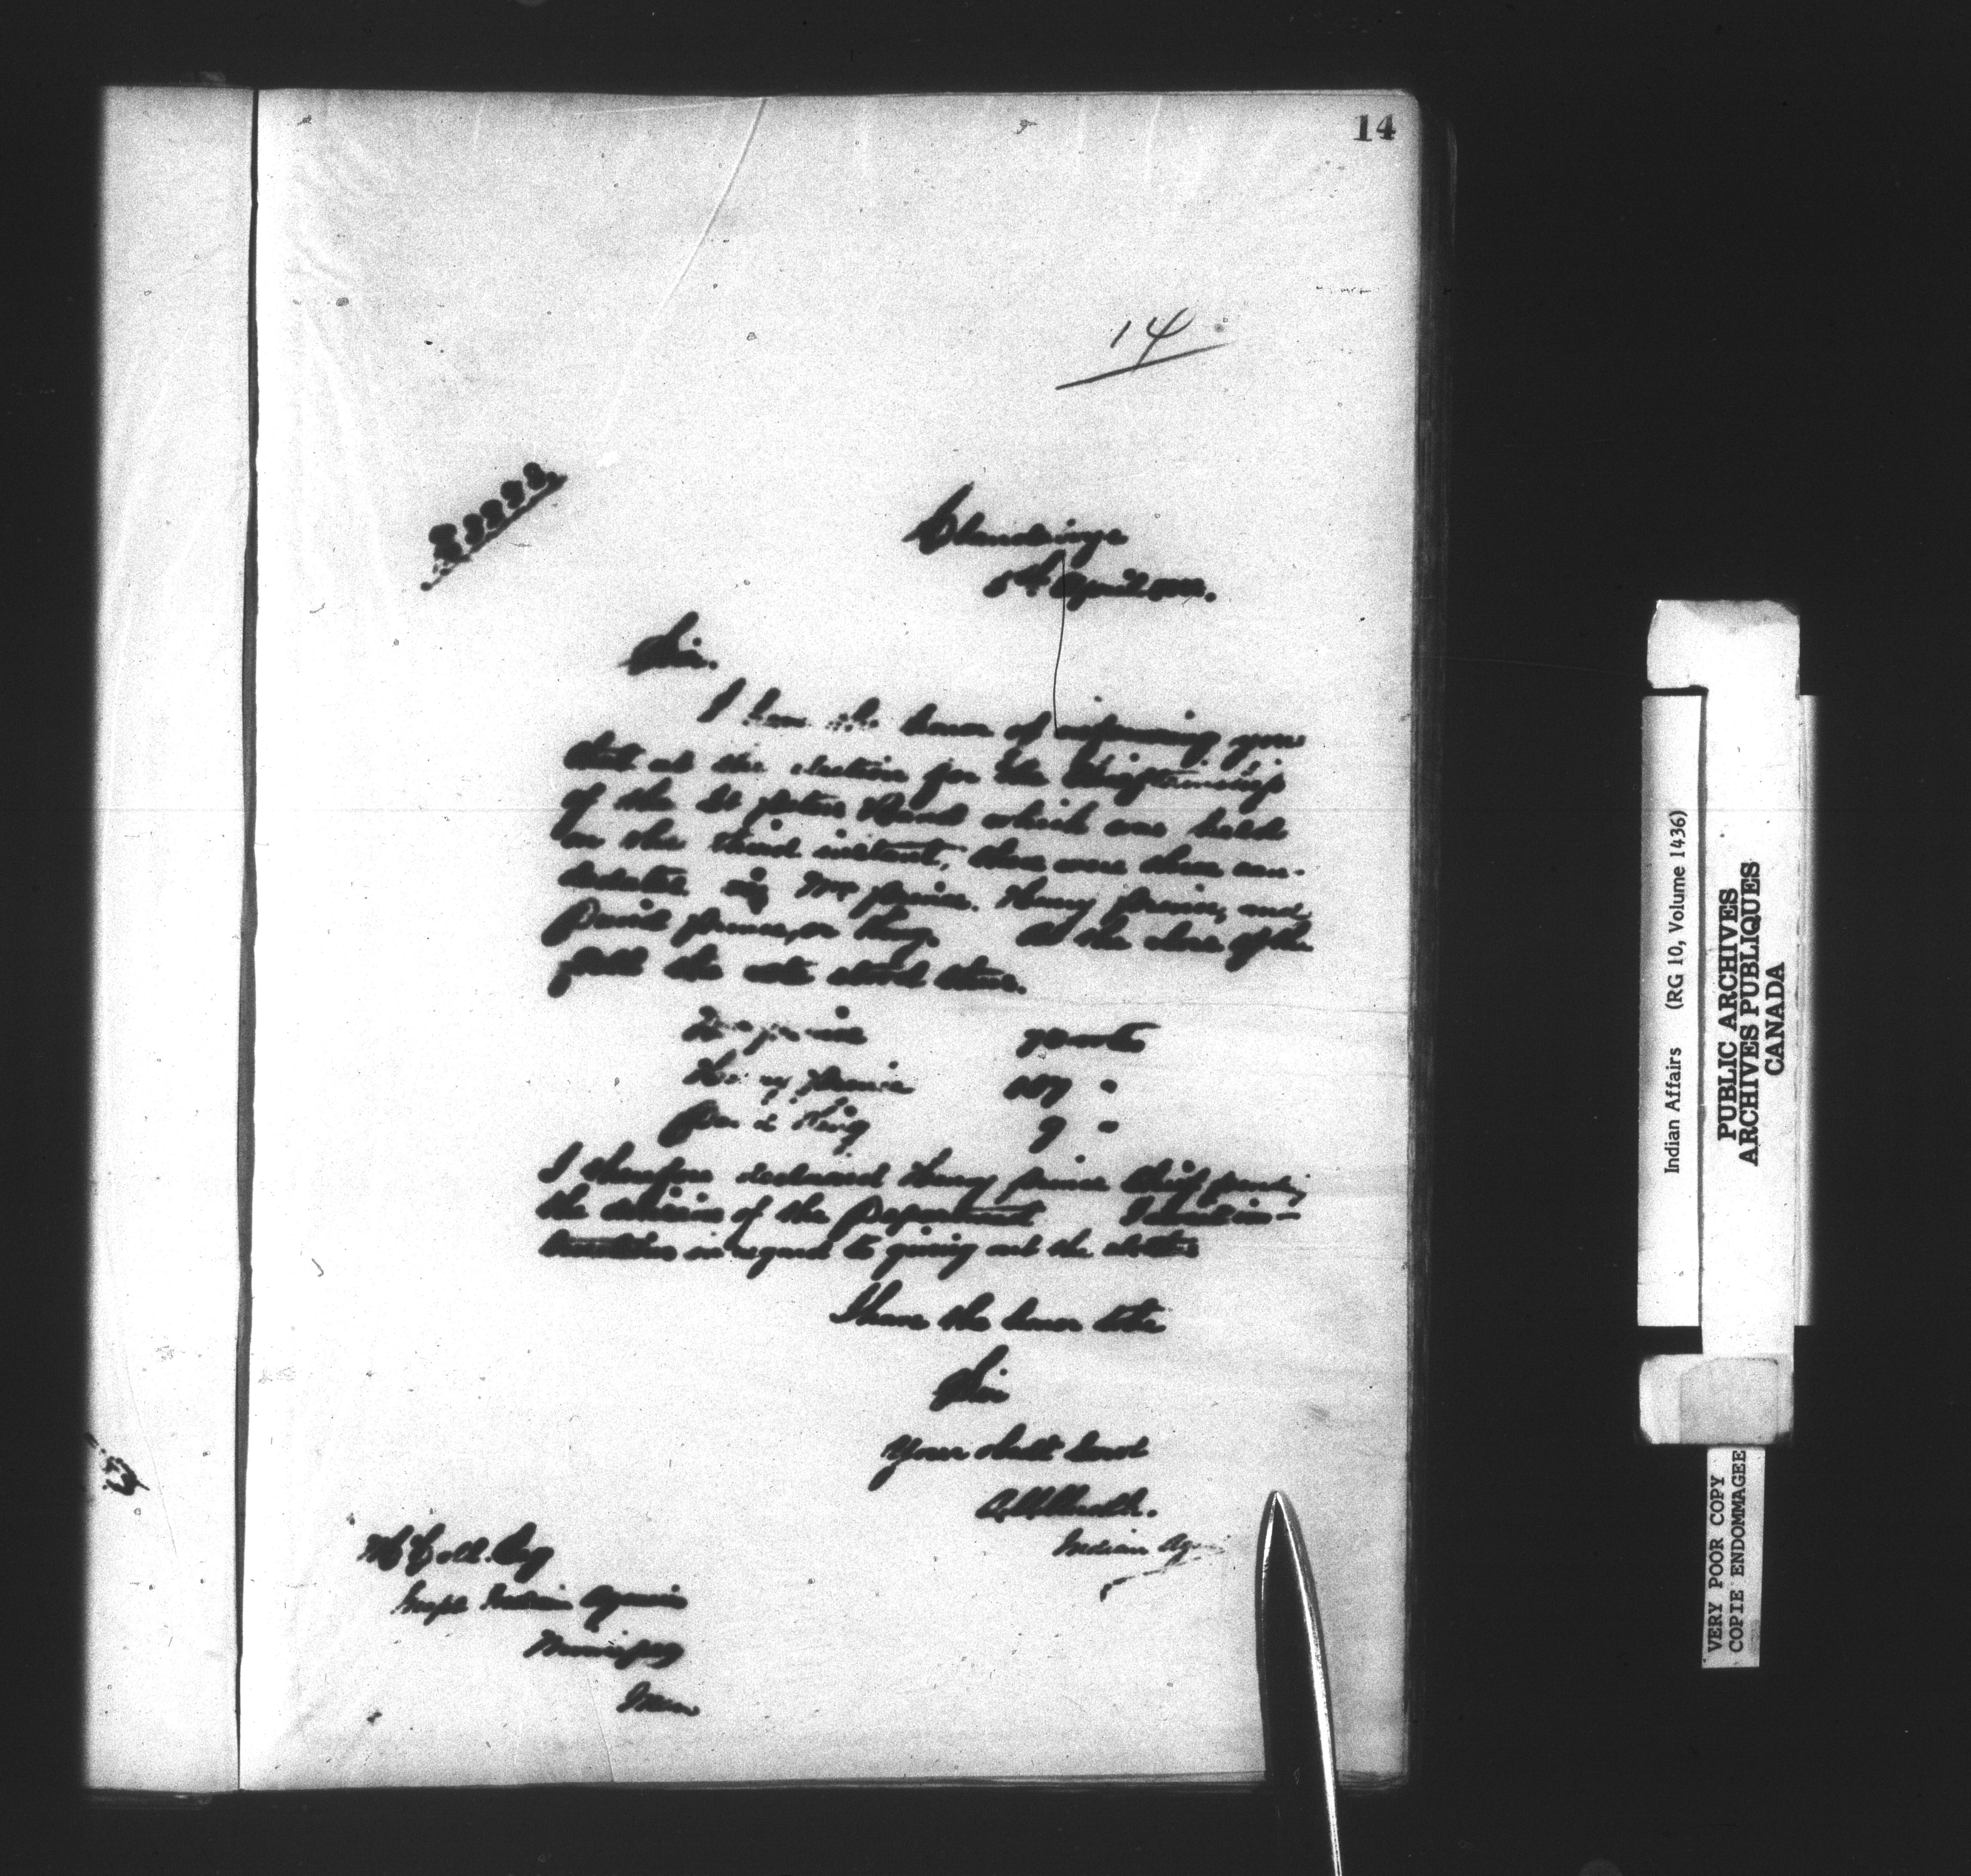 14
14
Clandeboye
5th April
Sir.
I have the honor of informing you
that at the election for the Chieftainship
of the St peters Band which was held
on the third instant, there were three can-
didates viz Wm prince. Henry prince, and
David prince, or King. At the close of the
poll the vote stood thus.
Wm prince votes
Henry prince "
David King 9 "
I therefore declared Henry prince Chief pending
the decision of the Department
in regard to giving out the
I have the honor to be
Sir
Your obdt servt
Indian Agent
Esq
Inspt Indian Agencies
Winnipeg
Man
Indian Affairs (RG 10, Volume 1436)
PUBLIC ARCHIVES
ARCHIVES PUBLIQUES
CANADA
VERY POOR COPY
COPIE ENDOMMAGEE